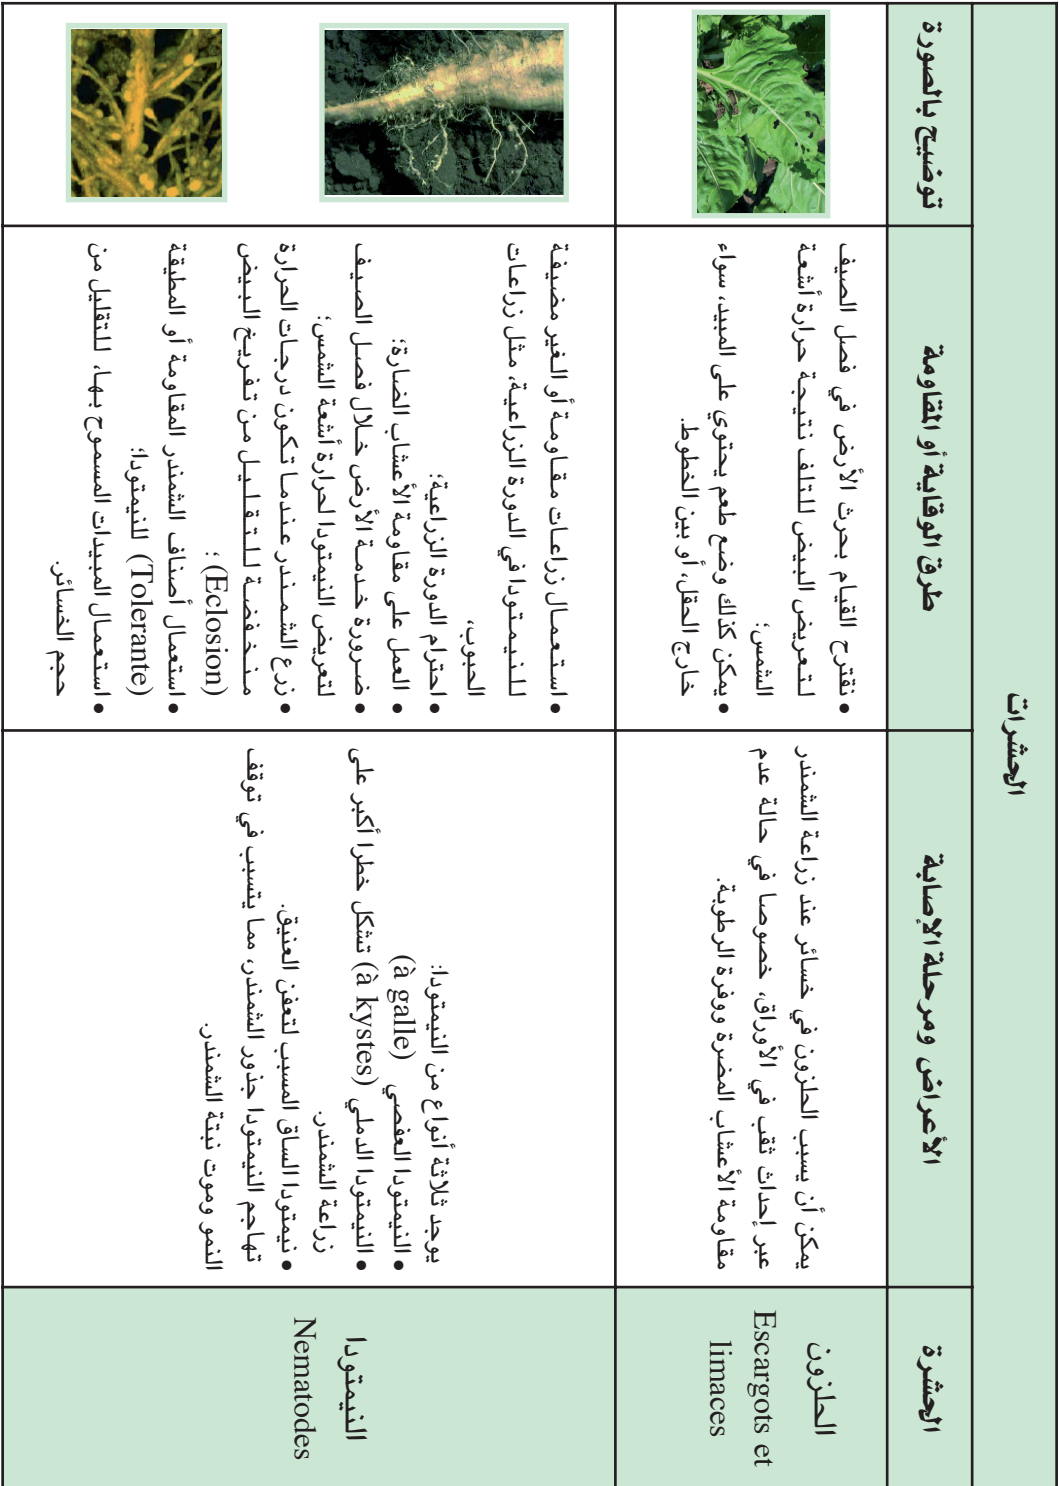 الحشرات
الحشرة
الأعراض ومرحلة الإصابة
طرق الوقاية أو المقاومة
توضيح بالصورة
الحلزون
Escargots et
limaces
يمكن أن يسبب الحلزون في خسائر عند زراعة الشمندر
عبر إحداث ثقب في الأوراق، خصوصا في حالة عدم
مقاومة الأعشاب المضرة ووفرة الرطوبة.
• نقترح القيام بحرث الأرض في فصل الصيف
لتعريض البيض للتلف نتيجة حرارة أشعة
الشمس؛
• يمكن كذلك وضع طعم يحتوي على المبيد، سواء
خارج الحقل، أو بين الخطوط.
النيمتودا
Nematodes
يوجد ثلاثة أنواع من النيمتودا:
• النيمتودا العفصي (à galle)
• النيمتودا الدملي (à kystes) تشكل خطرا أكبر على
زراعة الشمندر.
• نيمتودا الساق المسبب لتعفن العنيق.
تهاجم النيمتودا جذور الشمندر، مما يتسبب في توقف
النمو وموت نبتة الشمندر.
• استعمال زراعات مقاومة أو الغير مضيفة
للنيمتودا في الدورة الزراعية، مثل زراعات
الحبوب،
• احترام الدورة الزراعية؛
• العمل على مقاومة الأعشاب الضارة؛
• ضرورة خدمة الأرض خلال فصل الصيف
لتعريض النيمتودا لحرارة أشعة الشمس؛
• زرع الشمندر عندما تكون درجات الحرارة
منخفضة للتقليل من تفريخ البيض
(Eclosion) ؛
• استعمال أصناف الشمندر المقاومة أو المطيقة
(Tolerante) للنيمتودا؛
• استعمال المبيدات المسموح بها، للتقليل من
حجم الخسائر.